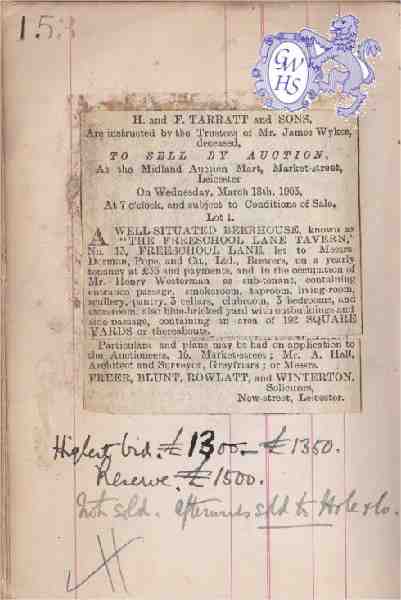 153
GWHS
H. and F. TARRATT and SONS,
Are instructed by the Trustees of Mr. James Wykes,
deceased,
TO SELL BY AUCTION,
At the Midland Auction Mart, Market-street,
Leicester
On Wednesday, March 18th, 1903,
At 7 o'clock, and subject to Conditions of Sale,
Lot 1.
A WELL-SITUATED BEERHOUSE, known as
"THE FREESCHOOL LANE TAVERN,"
No. 13, FREESCHOOL LANE, let to Messrs.
Dorman, Pope, and Co., Ltd., Brewers, on a yearly
tenancy at £35 and payments, and in the occupation of
Mr. Henry Westerman as sub-tenant, containing
entrance passage, smokeroom, taproom, living-room,
scullery, pantry, 3 cellars, clubroom, 3 bedrooms, and
storeroom, also blue-bricked yard with outbuildings and
side passage, containing an area of 192 SQUARE
YARDS or thereabouts.
Particulars and plans may be had on application to
the Auctioneers, 16, Market-street; Mr. A. Hall,
Architect and Surveyor, Greyfriars; or Messrs.
FREER, BLUNT, ROWLATT, and WINTERTON,
Solicitors,
New-street, Leicester.
Highest bid. £1300 - £1350.
Reserve. £1500.
Not sold. afterwards sold to Hole & Co.